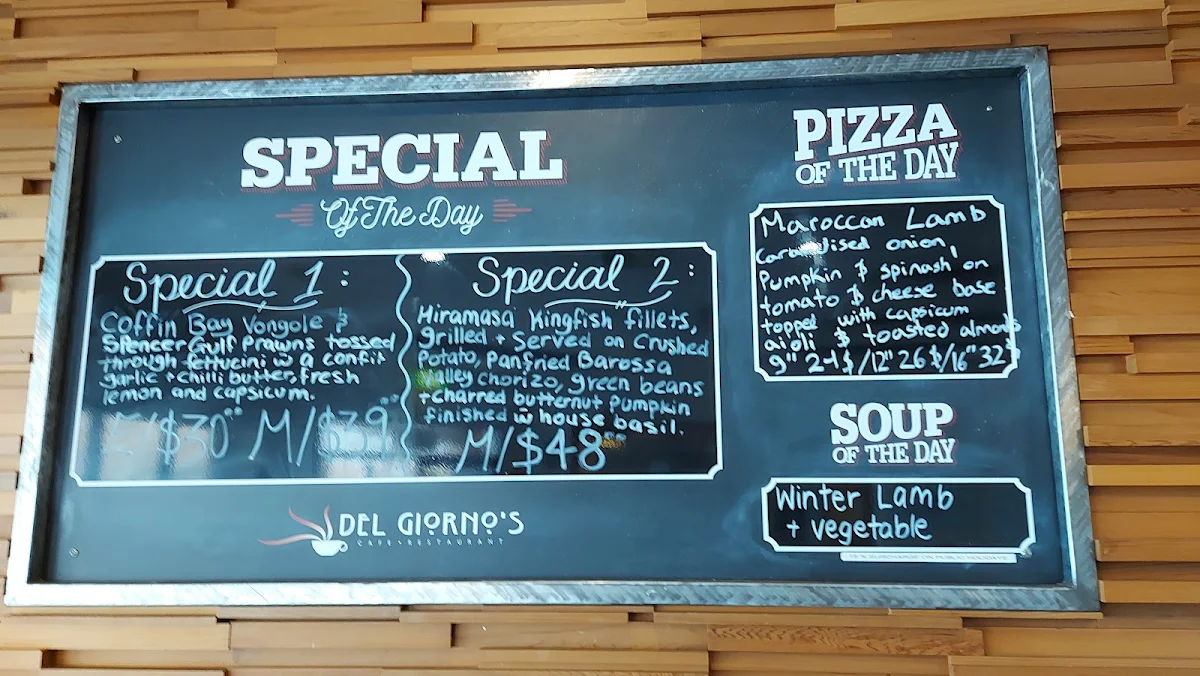 SPECIAL
Of The Day
Special 1:
Coffin Bay Vongole &
Spencer Gulf Prawns tossed
through fettucini w a confit
garlic + chilli butter, fresh
lemon and capsicum.
E/$30⁰⁰ M/$39⁰⁰
Special 2:
Hiramasa Kingfish fillets,
grilled + Served on Crushed
Potato, Panfried Barossa
Valley chorizo, green beans
+ charred butternut Pumpkin
finished w house basil.
M/$48⁰⁰
DEL GIORNO'S
CAFE • RESTAURANT
PIZZA
OF THE DAY
Maroccan Lamb
Caramelised onion,
Pumpkin & spinash on
tomato & cheese base
topped with capsicum
aioli & toasted almonds
9" 24$/12" 26$/16" 32$
SOUP
OF THE DAY
Winter Lamb
+ vegetable